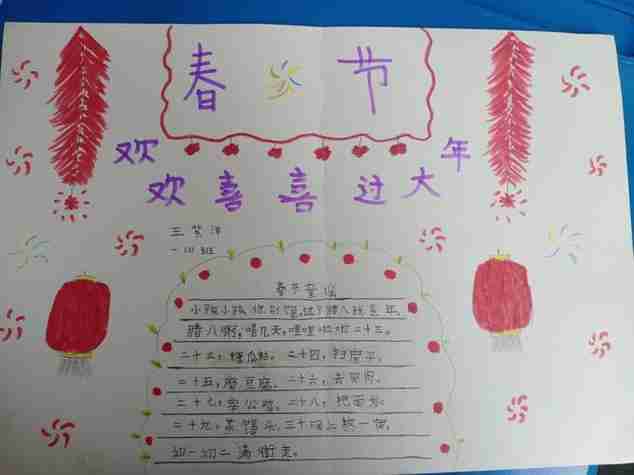 春节
欢欢喜喜过大年
王梵洋
一(4)班
春节童谣
小孩小孩你别馋,过了腊八就是年,
腊八粥,喝几天,哩哩啦啦二十三。
二十三,糖瓜粘。二十四,扫房子。
二十五,磨豆腐。二十六,去买肉。
二十七,宰公鸡。二十八,把面发。
二十九,蒸馒头。三十晚上熬一宿,
初一初二满街走。